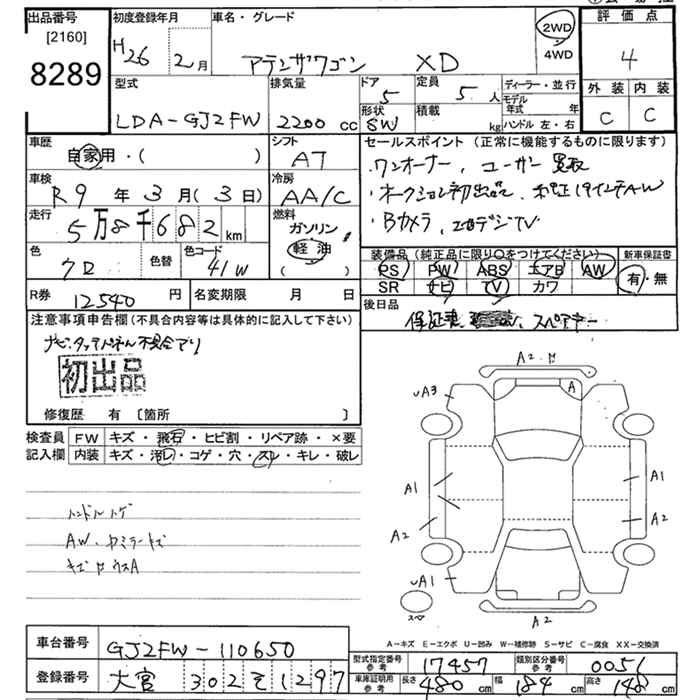 出品番号 初度登録年月 車名・グレード 2WD 4WD 評価点
[2160]
8289 H26 2月 アテンザワゴン XD 4
型式 排気量 ドア 定員 ディーラー・並行 外装 内装
LDA-GJ2FW 2200 cc 5 5人 モデル年式 年 C C
形状 積載
SW kg ハンドル 左・右
車歴 シフト セールスポイント(正常に機能するものに限ります)
自家用・( ) AT ワンオーナー、ユーザー買取
車検 冷房 ・オークション初出品、純正19インチAW
R9年3月(3日) AA/C ・Bカメラ、フルセグTV
走行 燃料
5万8千682km ガソリン
軽油
( )
色 色替 色コード 装備品(純正品に限り○をつけてください) 新車保証書
クロ 41W PS PW ABS エアB AW 有・無
SR ナビ TV カワ
R券 12540円 名変期限 月 日 後日品
保証書、スペアキー
注意事項申告欄(不具合内容等は具体的に記入して下さい)
ナビ・タッチパネル不具合アリ
初出品
修復歴 有 〔箇所 〕
検査員 FW キズ・飛石・ヒビ割・リペア跡・×要
記入欄 内装 キズ・汚レ・コゲ・穴・スレ・キレ・破レ
ハンドルハゲ
AW、ドアミラーキズ
キズ ウスA
A2
A
A3
A1 A1
A2 A2
A1
スペア
A2
A-キズ E-エクボ U-凹み W-補修跡 S-サビ C-腐食 XX-交換済
車台番号 GJ2FW-110650
登録番号 大宮 302 そ 1297
型式指定番号 参考 17457 類別区分番号 参考 0051
車庫証明用 参考 長さ 480cm 幅 184cm 高さ 148cm